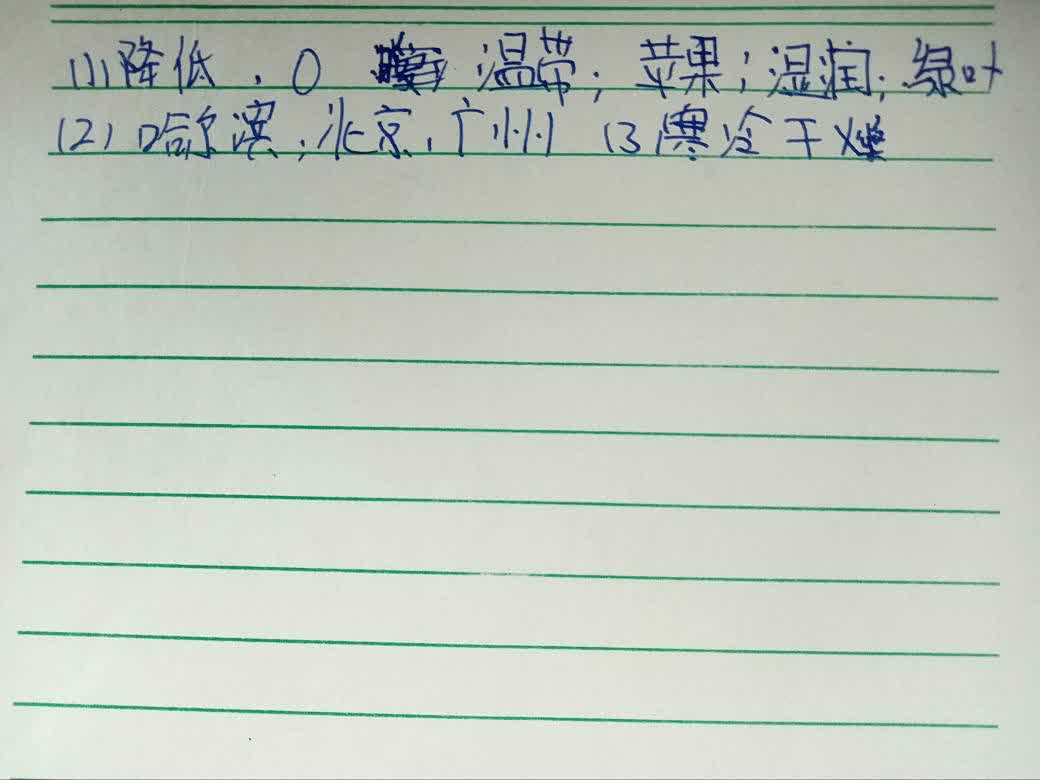 (1)降低，0 温带；苹果；湿润；绿叶
(2)哈尔滨，北京，广州 (3)寒冷干燥